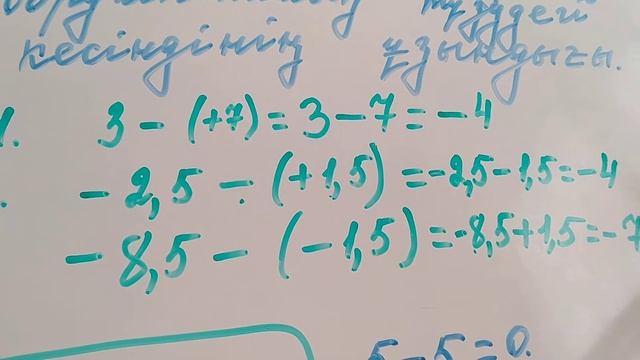 түзудегі
кесіндінің ұзындығы.
1. 3 - (+7) = 3 - 7 = -4
- 2,5 - (+1,5) = -2,5 - 1,5 = -4
- 8,5 - (-1,5) = -8,5 + 1,5 = -7
5 - 5 = 0.